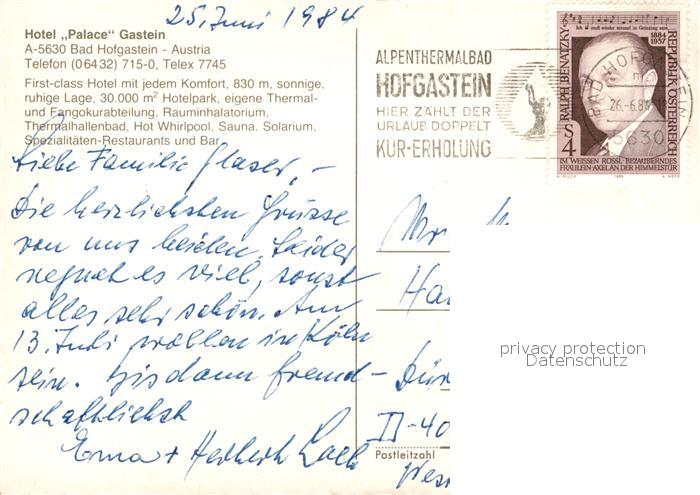 25. Juni 1984
Hotel „Palace" Gastein
A-5630 Bad Hofgastein - Austria
Telefon (06432) 715-0, Telex 7745
First-class Hotel mit jedem Komfort, 830 m, sonnige,
ruhige Lage, 30.000 m² Hotelpark, eigene Thermal-
und Fangokurabteilung, Rauminhalatorium,
Thermalhallenbad, Hot Whirlpool, Sauna. Solarium.
Spezialitäten-Restaurants und Bar
Liebe Familie Glaser, –
Die herzlichsten Grüsse
von uns beiden. Leider
regnet es viel, sonst
alles sehr schön. Am
13. Juli wollen in Köln
sein. Bis dann freund-
schaftlichst
Erna + Herbert
ALPENTHERMALBAD
HOFGASTEIN
HIER ZÄHLT DER
URLAUB DOPPELT
KUR-ERHOLUNG
BAD HOFGASTEIN
26.-6.84
5630
Ich muß wieder einmal in Grinzing sein
RALPH BENATZKY
1884
1957
REPUBLIK ÖSTERREICH
S 4
IM WEISSEN RÖSSL·BEZAUBERNDES
FRÄULEIN·AXEL AN DER HIMMELSTÜR
A. PILCH 1984 A. NEFE
Ha
Dür
D-40
Postleitzahl
Wes
privacy protection
Datenschutz